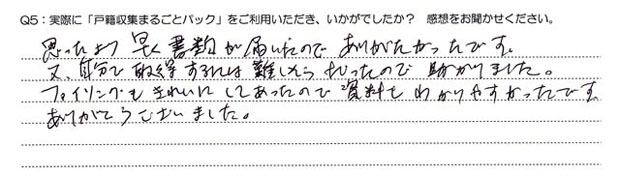 Q5：実際に「戸籍収集まるごとパック」をご利用いただき、いかがでしたか？ 感想をお聞かせください。
思ったより早く書類が届いたので ありがたかったです。
又、自分で取得するには難しそうだったので 助かりました。
ファイリングも きれいに してあったので 資料も わかりやすかったです。
ありがとうございました。